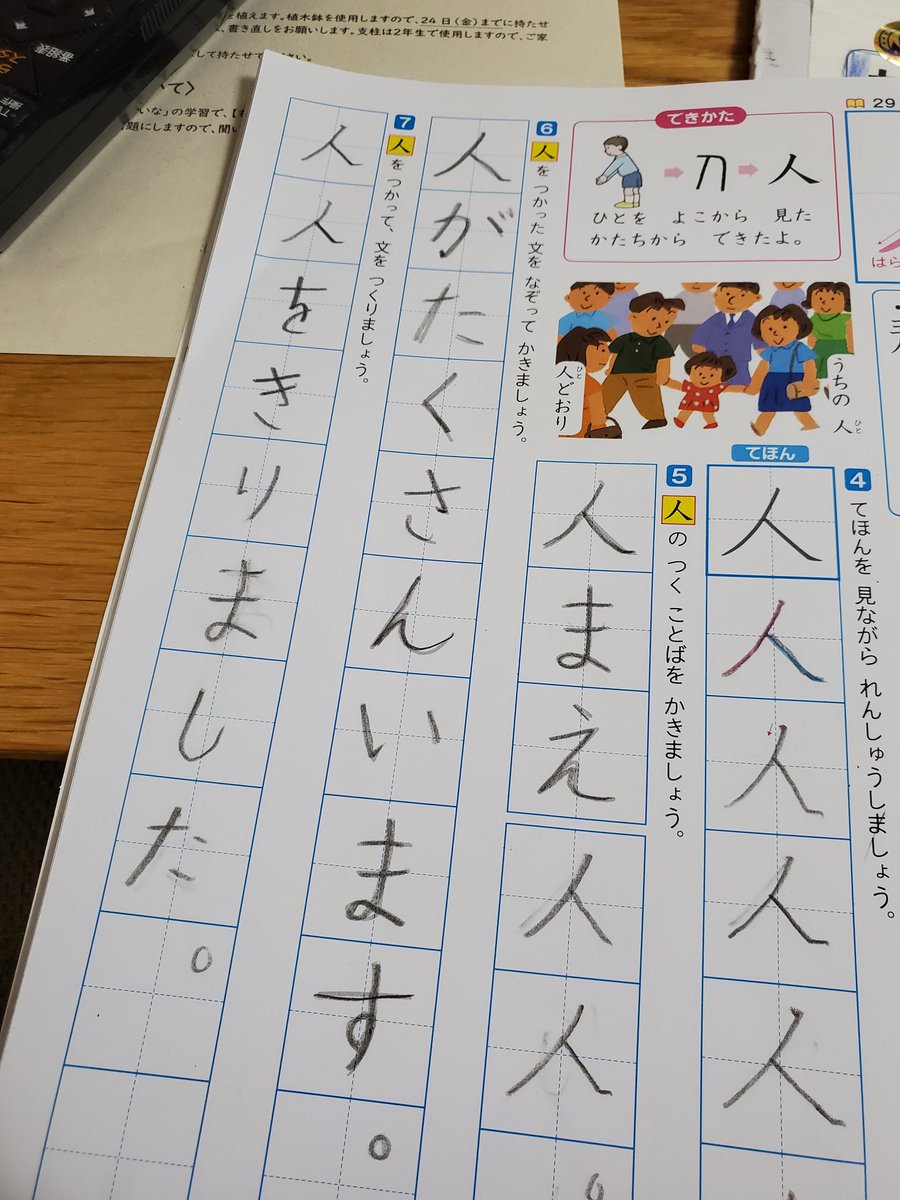 を植えます。植木鉢を使用しますので、24日(金)までに持たせ
、書き直しをお願いします。支柱は2年生で使用しますので、ご家
して持たせて
さい。
いて〉
いな」の学習で、
題にしますので、聞い
番組表
29
はら
4 てほんを 見ながら れんしゅうしましょう。
てほん
人
人
人
人
人
5 人の つく ことばを かきましょう。
人まえ
人人。
できかた
人
ひとを よこから 見た
かたちから できたよ。
うちの 人
ひと
人どおり
ひと
6 人を つかった 文を なぞって かきましょう。
人がたくさんいます。
7 人を つかって、文を つくりましょう。
人人をきりました。